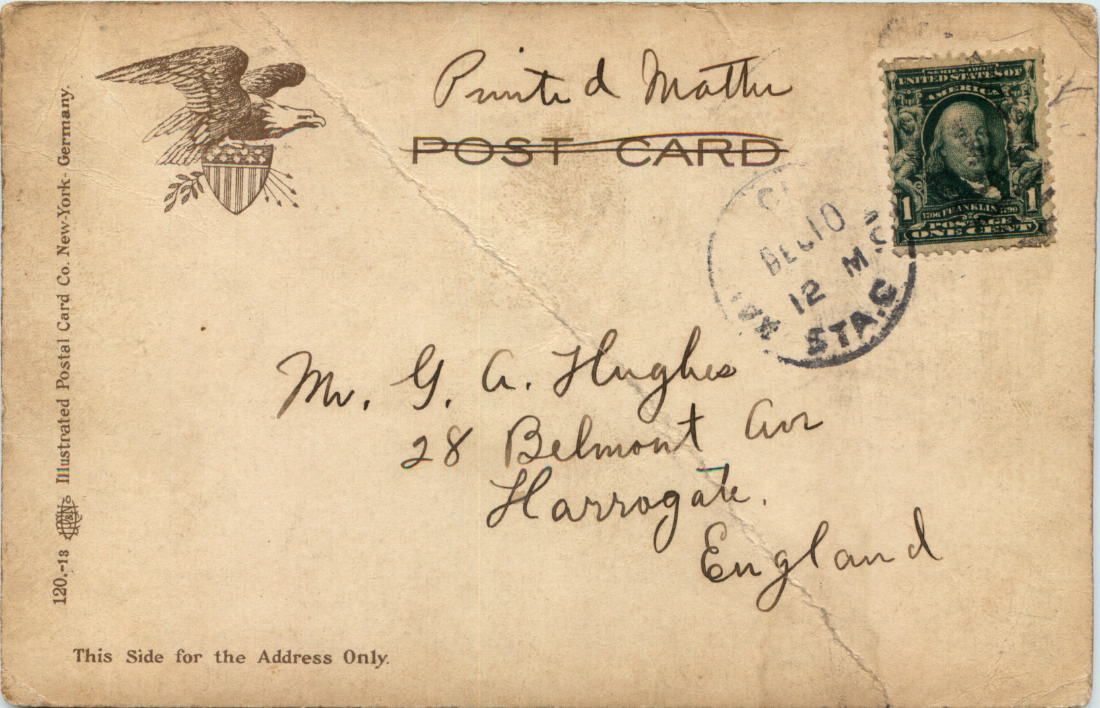 Printed Matter
POST CARD
SERIES 1902
UNITED STATES OF
AMERICA
1 1706 FRANKLIN 1790 1
POSTAGE
ONE CENT
DEC 10
12 M
STA. C
Mr. G. A. Hughes
28 Belmont Ave
Harrogate.
England
120.-13 Illustrated Postal Card Co. New-York - Germany.
This Side for the Address Only.